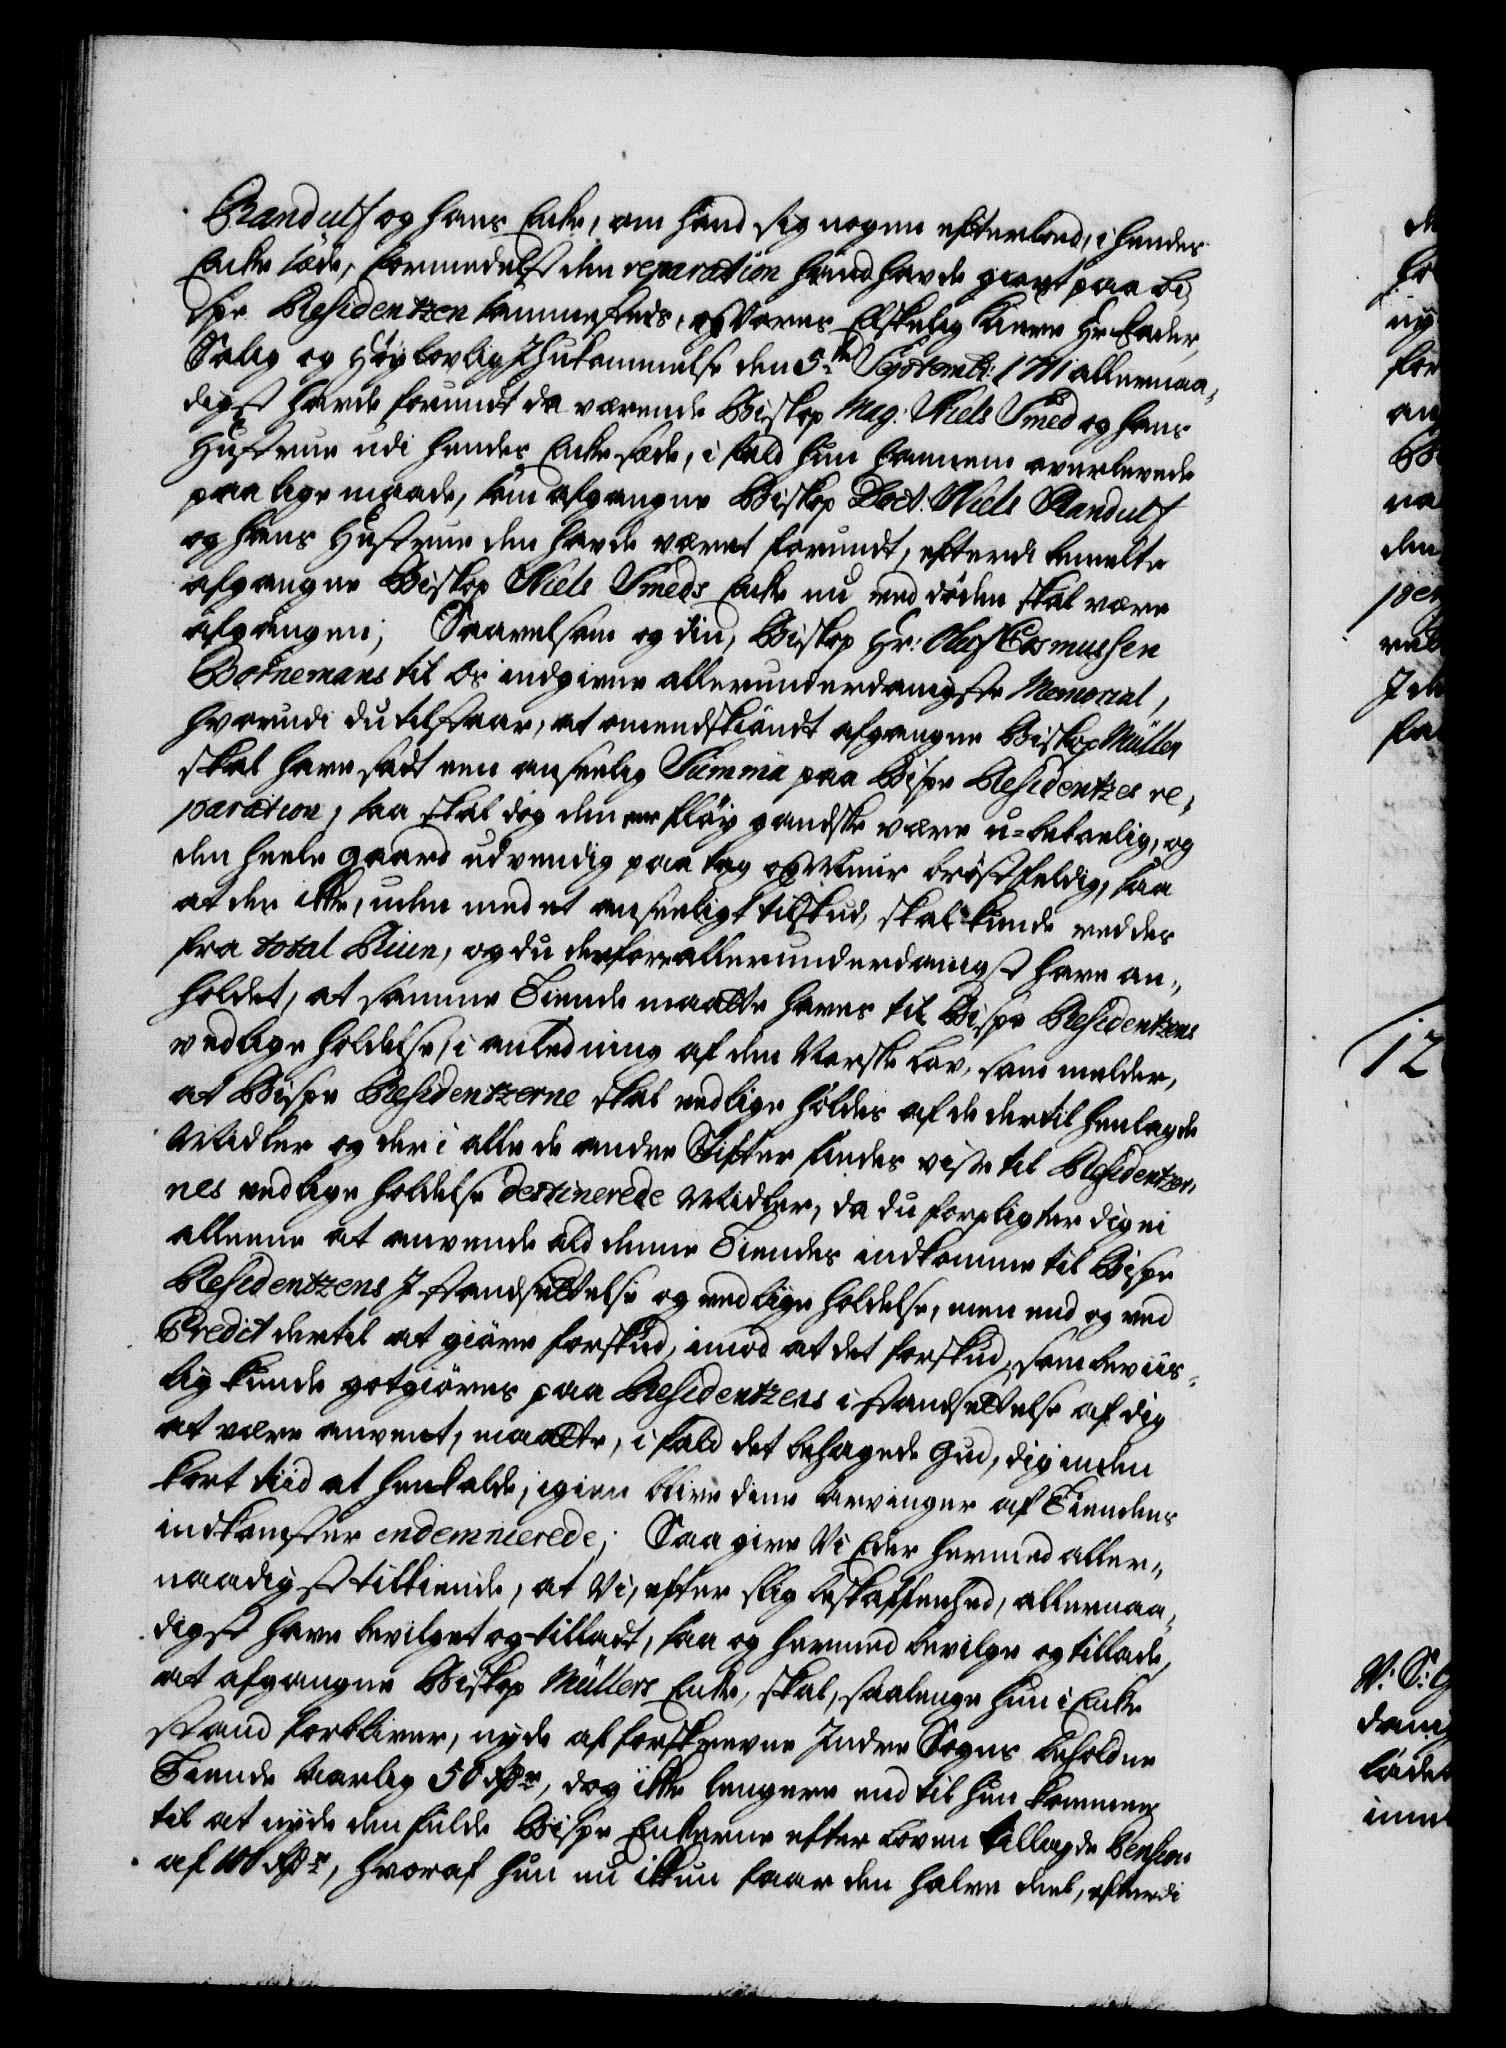 Randulf og hans Enke, om hand sig nogen efterlod, i hendes
Enke sæde, formedelst den reparation hand havde giort paa Bi,
spe Residentzen sammesteds, og Vores Elskelig kiere Hr: Fader,
Salig og Høylovlig Ihukommelse den 5te Septembr: 1711 allernaa,,
digst havde forundt da værende Biskop Mag: Niels Smed og hans
Hustrue udi hendes Enkesæde, i fald hun hannem overlevede
paa lige maade, som afgangne Biskop Doct: Niels Randulf
og hans Hustrue den havde været forundt, efterdi bemelte
afgangne Biskop Niels Smeds Enke nu ved døden skal være
afgangen; Saavelsom og din, Biskop Hr: Oluf Cosmussen
Bornemans til Os indgivne allerunderdanigste Memorial,
hvorudi du tilstaar, at omendskiøndt afgangne Biskop Müller
skal have sadt een anseelig Summa paa Bispe Residentzes re,
paration, saa skal dog den eene fløy gandske være u-beboelig, og
den heele gaard udvendig paa tag og Muur brøstfeldig, saa
at der ikke, uden med et anseeligt tilskud, skal kunde reddes
fra total Ruin, og du derfore allerunderdanigst have an,,
holdet, at samme Tiende maatte haves til Bispe Residentzens
vedlige holdelse, i anledning af den Norske Lov, som melder,
at Bispe Residentzerne skal vedlige holdes af de dertil henlagde
Midler og der i alle de andre Stifter findes visse til Residentzer,
nes vedlige holdelse destinerede Midler, da du forpligter dig ei
alleene at anvende ald denne Tiendes indkomme til Bispe
Residentzens Istandsættelse og vedlige holdelse, men end og ved
Credit dertil at giøre forskud, imod at det forskud, som beviis,
lig kunde gotgiøres paa Residentzens istandsættelse af dig
at være anvent, maatte, i fald det behagede Gud, dig inden
kort tiid at henkalde, igien blive dine Arvinger af Tiendens
indkomster indemnierede; Saa give Vi Eder hermed aller,,
naadigst tilkiende, at Vi, efter slig beskaffenhed, allernaa,
digst have bevilget og tilladt, saa og hermed bevilge og tillade,
at afgangne Biskop Müllers Enke, skal, saalenge hun i Enke
stand forbliver, nyde af forskrevne Indre Sogns beholdne
Tiende Aarlig 50 Rdr, dog ikke lengere end til hun kommer
til at nyde den fulde Bispe Enkerne efter Loven tillagde Pension
af 100 Rdr, hvoraf hun nu ikkun faar den halve deel, efterdi